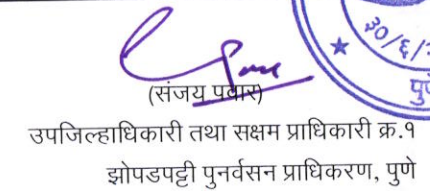 ३०/६/
पुणे
(संजय पवार)
उपजिल्हाधिकारी तथा सक्षम प्राधिकारी क्र.१
झोपडपट्टी पुनर्वसन प्राधिकरण, पुणे